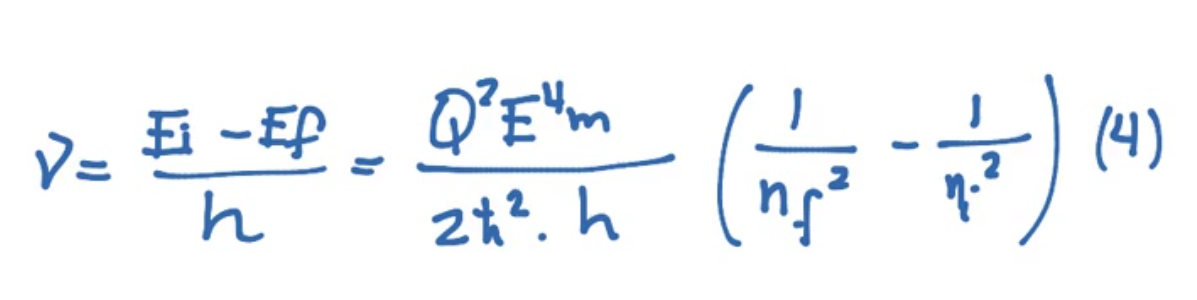 ν = \frac{Ei - Ef}{h} = \frac{Q^2 E^4 m}{2ħ^2 . h} \left( \frac{1}{n_f^2} - \frac{1}{n_i^2} \right) (4)